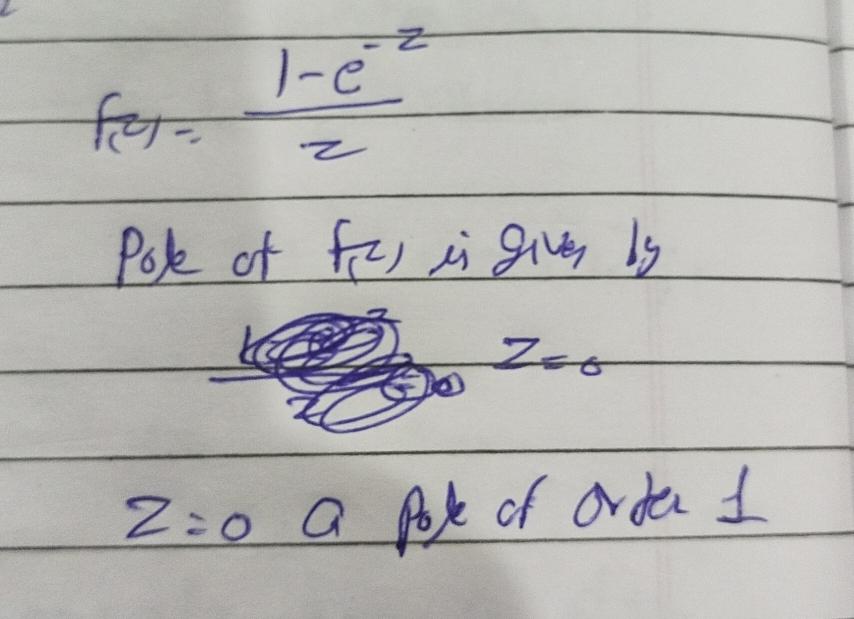 f(z) = 1-e^-z / z
Pole of f(z) is given by
z=0
z=0 a Pole of order 1